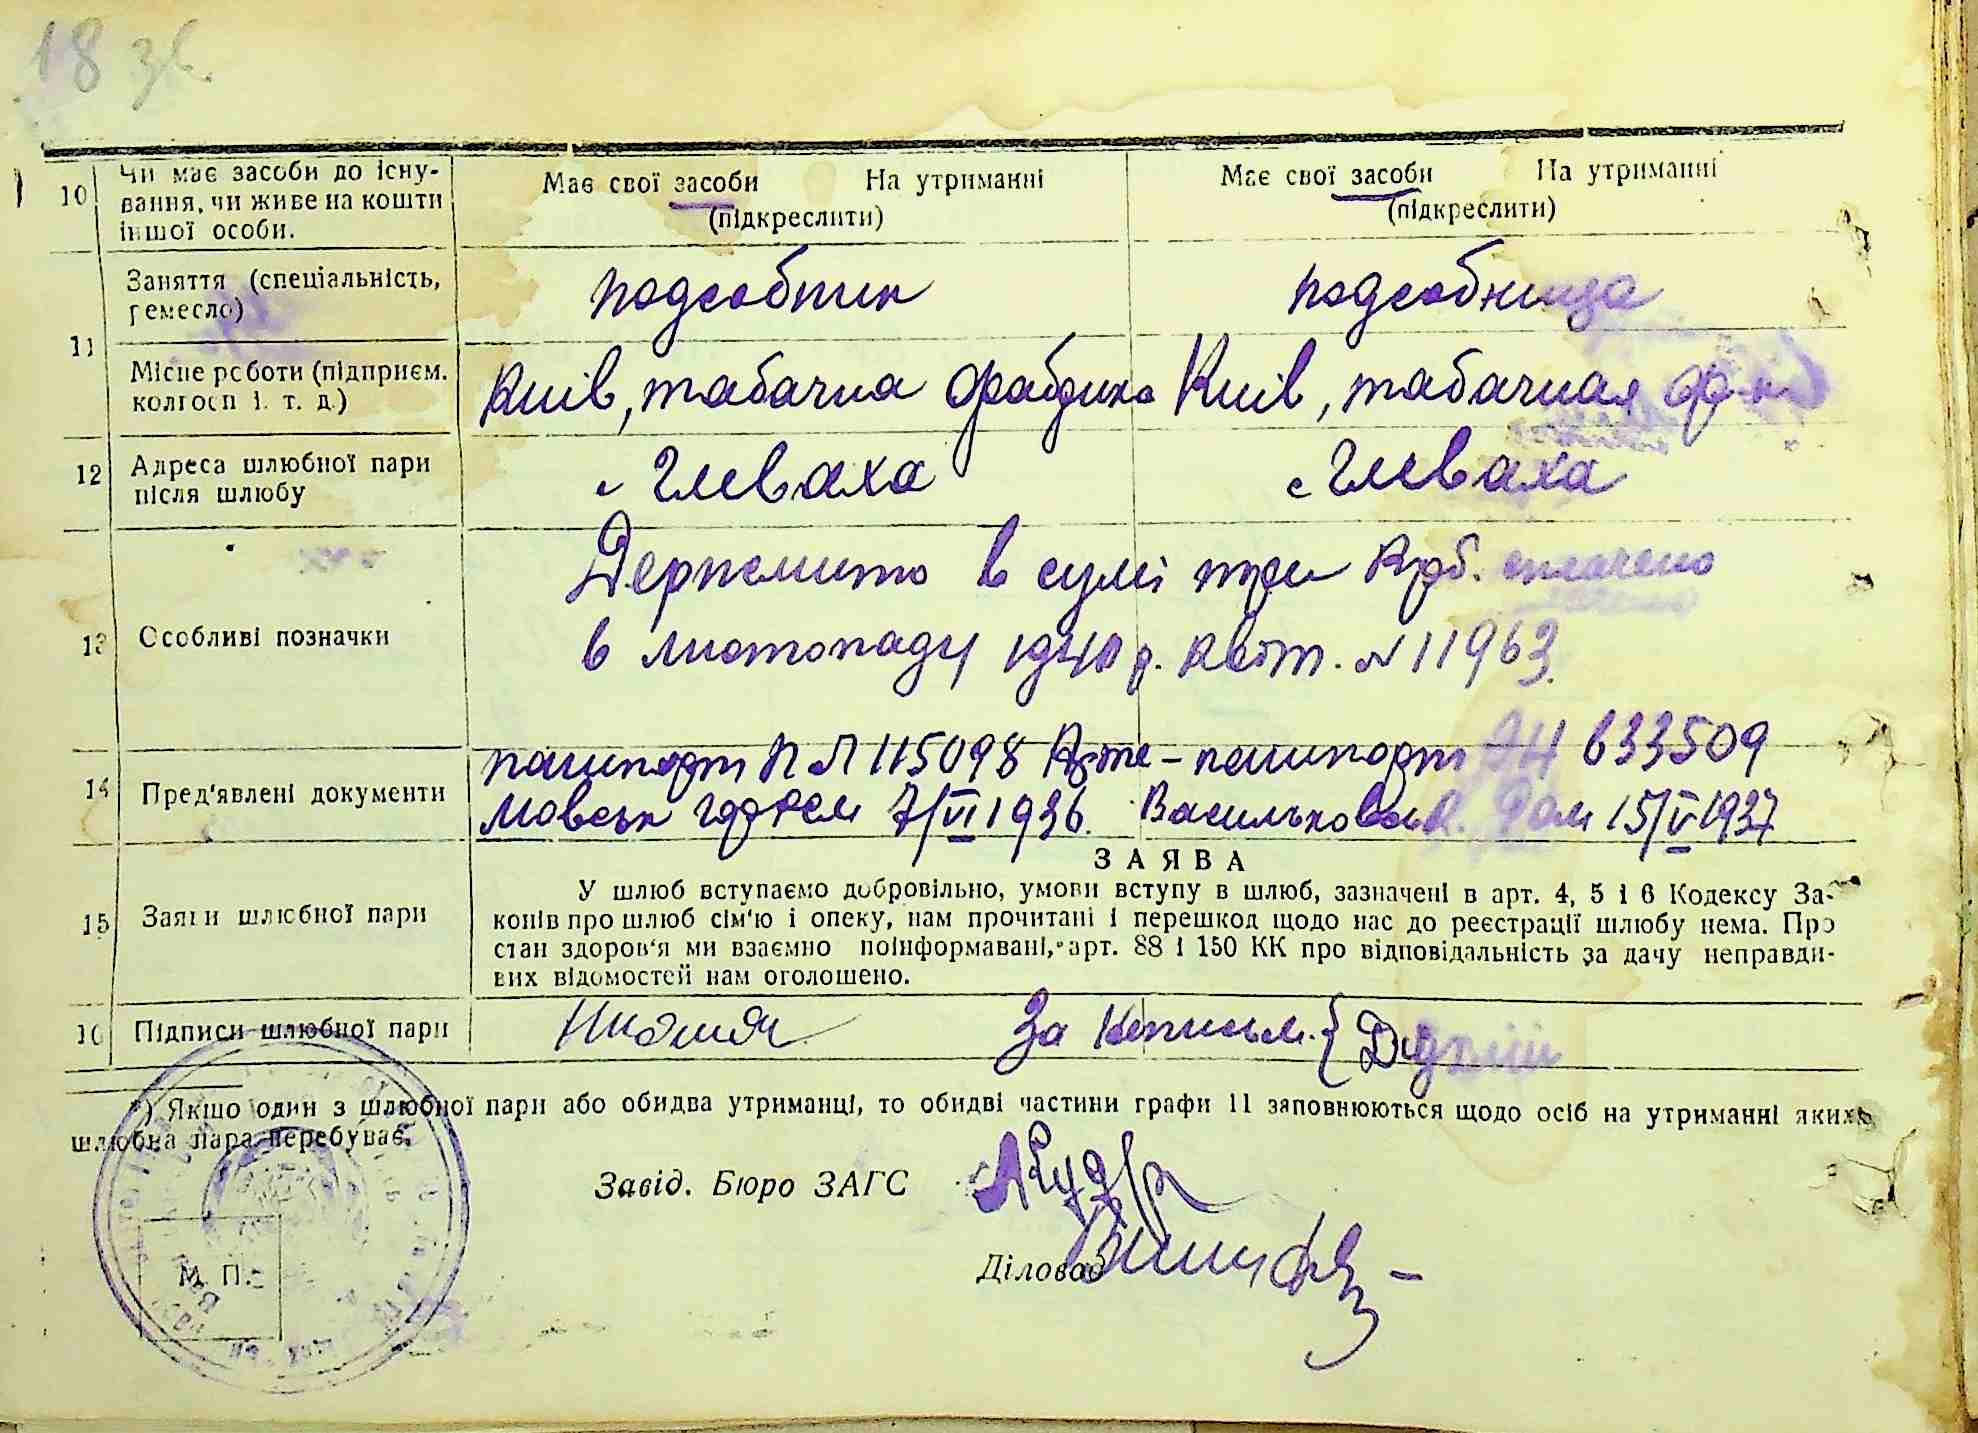 18 зв.
10 Чи має засоби до існу-
вання, чи живе на кошти
іншої особи.
Має свої засоби На утриманні
(підкреслити)
Має свої засоби На утриманні
(підкреслити)
11
Заняття (спеціальність,
ремесло)
подсобник
подсобница
Місце роботи (підприєм.
колгосп і. т. д.)
Київ, табачна фабрика
Київ, табачная ф-к
12 Адреса шлюбної пари
після шлюбу
с Глеваха
с Глеваха
13 Особливі позначки
Держмито в сумі три крб. сплачено
в листопаду 1940 р. квит. № 11963.
14 Пред'явлені документи
пашпорт П Л 115098 Арте-
мовськ 7/VI 1936.
пашпорт 633509
Васильковськ. 15/V 1937
15 Заяви шлюбної пари
ЗАЯВА
У шлюб вступаємо добровільно, умови вступу в шлюб, зазначені в арт. 4, 5 і 6 Кодексу За-
конів про шлюб сім'ю і опеку, нам прочитані і перешкод щодо нас до реєстрації шлюбу нема. Про
стан здоров'я ми взаємно поінформавані, арт. 88 і 150 КК про відповідальність за дачу неправди-
вих відомостей нам оголошено.
16 Підписи шлюбної пари
За
*) Якшо один з шлюбної пари або обидва утриманці, то обидві частини графи 11 заповнюються щодо осіб на утриманні яких
шлюбна пара перебуває.
Завід. Бюро ЗАГС
Діловод
М. П.